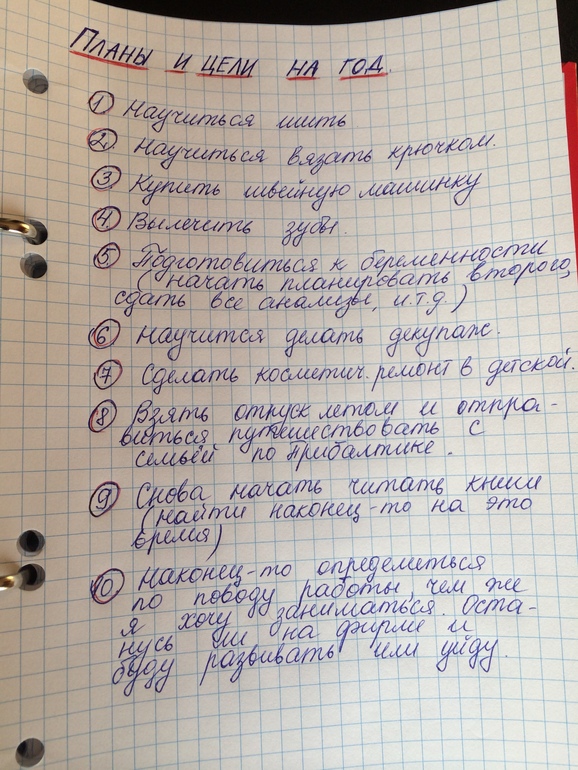 Планы и цели на год.
1 Научиться шить
2. Научиться вязать крючком.
3 Купить швейную машинку
4. Вылечить зубы.
5 Подготовиться к беременности
(начать планировать второго,
сдать все анализы, и.т.д.)
6 Научится делать декупаж.
7 Сделать косметич. ремонт в детской.
8 Взять отпуск летом и отпра-
виться путешествовать с
семьёй по Прибалтике.
9 Снова начать читать книги
(найти наконец-то на это
время)
10 Наконец-то определиться
по поводу работы, чем же
я хочу заниматься. Оста-
нусь ли на фирме и
буду развивать или уйду.